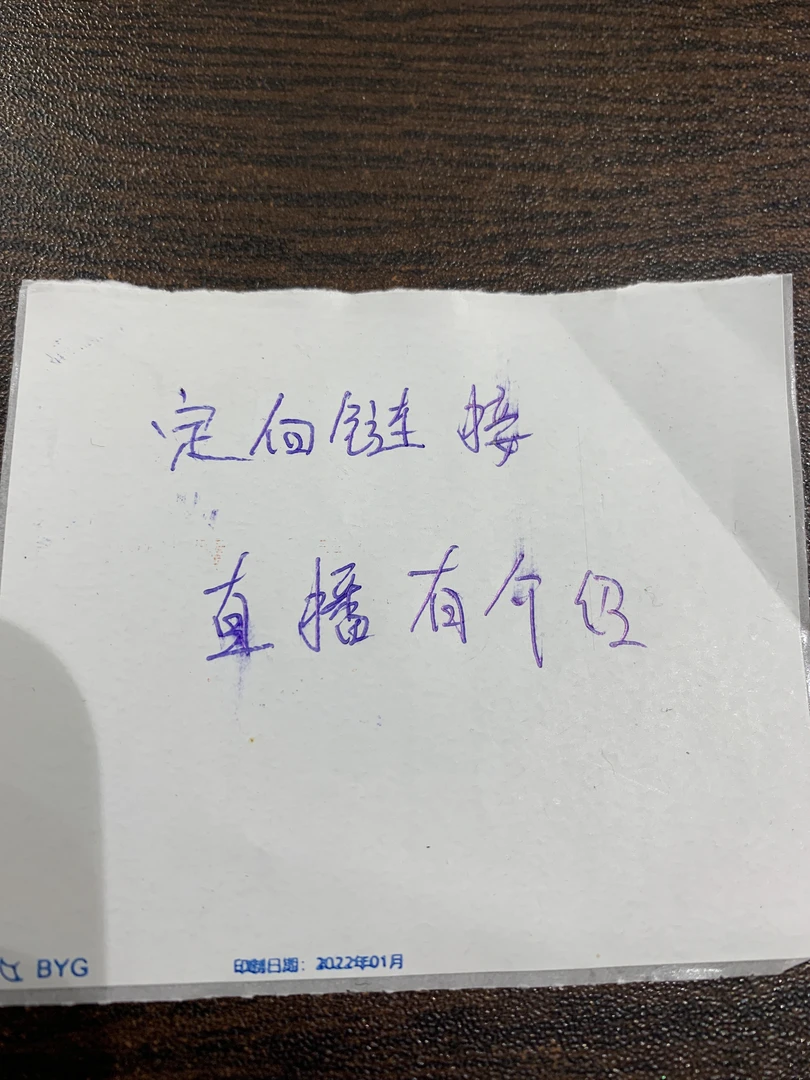 定向链接
直播有介绍
BYG 印制日期：2022年01月